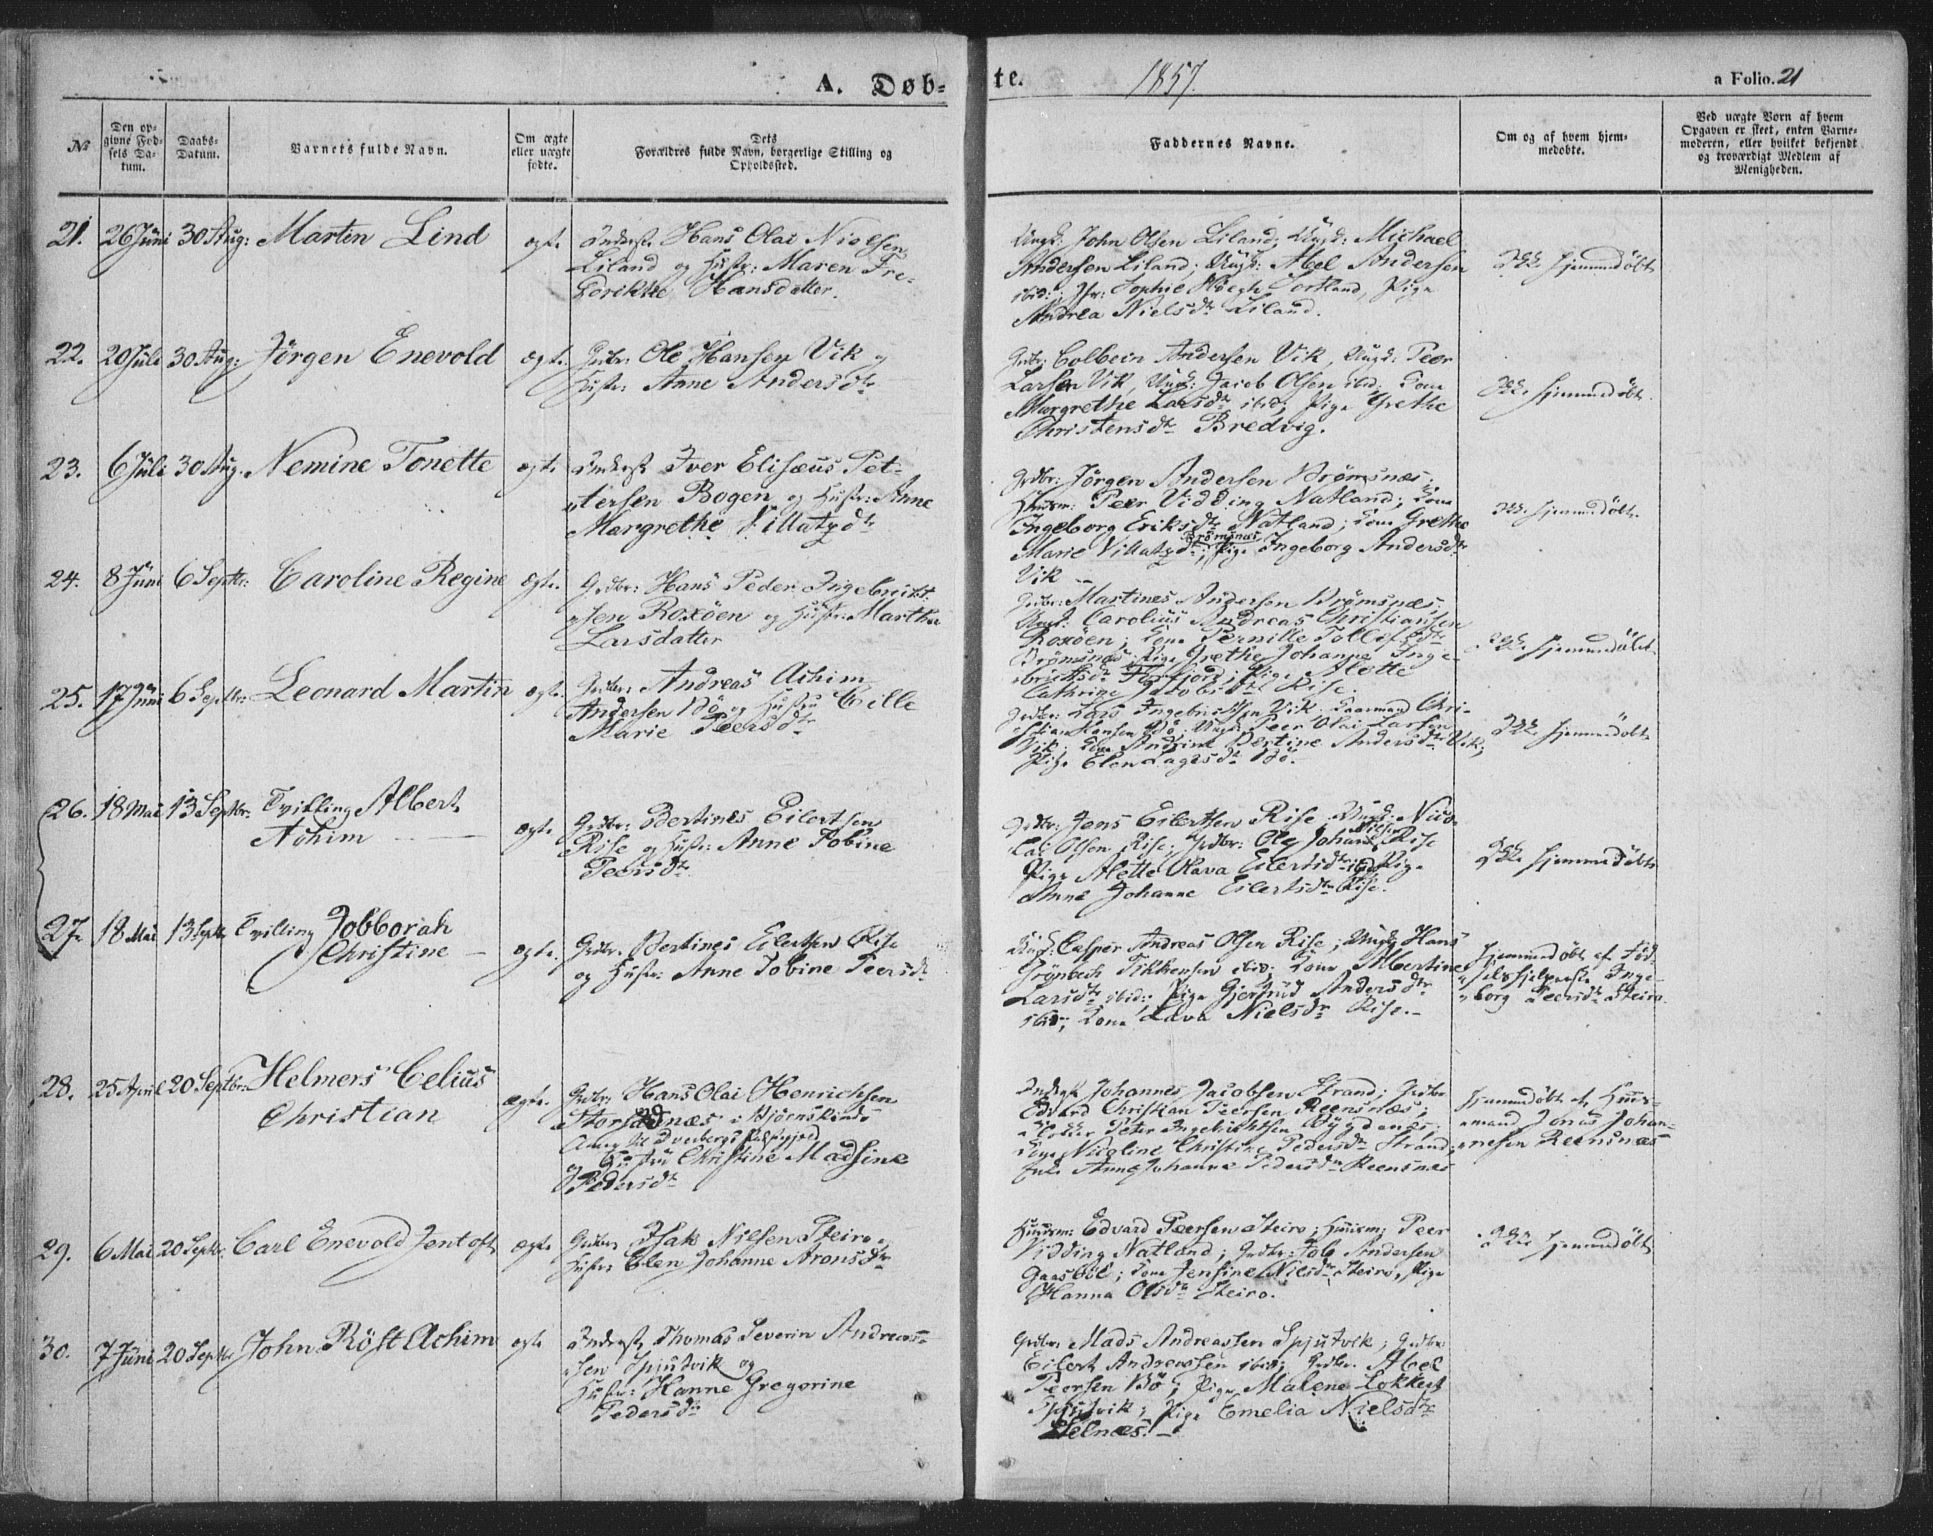 A. Døb-
te.
1857.
a Folio. 21
№
Den op-
givne Fød-
sels Da-
tum.
Daabs-
Datum.
Barnets fulde Navn.
Om ægte
eller uægte
fødte.
Dets
Forældres fulde Navn, borgerlige Stilling og
Opholdssted.
Faddernes Navne.
Om og af hvem hjem-
medøbte.
Ved uægte Børn af hvem
Opgaven er skeet, enten Barne-
moderen, eller hvilket bekjendt
og troværdigt Medlem af
Menigheden.
21. 26 Juni 30 Aug: Martin Lind
ægte
Inderst Hans Olai Nielsen
Liland og Hustr: Maren Fre-
derikke Hansdatter.
Ungk: John Olsen Liland; Ungk: Michael
Andersen Liland; Ungk: Abel Andersen
ibid:; Jfr: Sophie Høegh Sortland, Pige
Andrea Nielsdtr Liland.
Ikke hjemmedöbt
22. 20 Juli 30 Aug: Jörgen Enevold
ægte
Grdbr: Ole Hansen Vik og
Hustr: Anne Andersdtr
Grdbr: Colbein Andersen Vik, Ungk: Peer
Larsen Vik, Ungk: Jacob Olsen ibid: Kone
Margrethe Larsdtr ibid; Pige Grethe
Christensdtr Bredvig.
Ikke hjemmedöbt.
23. 6 Juli 30 Aug. Nemine Tonette
ægte
Inderst Iver Elisæus Pet-
tersen Bogen og Hustr: Anne
Margrethe Villatzdtr
Grdbr: Jörgen Andersen Brömsnæs;
Huusm: Peer Vidding Natland; Kone
Ingeborg Eriksdtr Natland; Kone Grethe
Brömsnæs
Marie Villatzdtr; Pige Ingeborg Andersdtr
Vik
Ikke hjemmedöbt.
24. 8 Juni 6 Septbr: Caroline Regine
ægte.
Grdbr: Hans Peder Ingebrickt-
sen Roxöen og Hustr: Martha
Larsdatter
Grdbr: Martines Andersen Brömsnæs;
Ungk: Carolius Andreas Christiansen
Roxöen; Kone Pernille Tollefsdtr
Brömsnæs; Pige Grethe Johanne Inge-
brictsdtr; Pige Alette
Cathrine Jacobsdtr Rise.
Ikke hjemmedöbt.
25. 17 Juni 6 Septbr: Leonard Martin
ægte.
Grdbr: Andreas Achim
Andersen Bö og Hustru Cille
Marie Peersdtr
Grdbr: Lars Ingebrigtsen Vik Chri-
stian Hansen Bö; Ungk: Peer Olai Larsen
Vik; Kone Andrine Bertine Andersdtr Vik;
Pige Elen Lagesdtr Bö.
Ikke hjemmedöbt
26. 18 Mai 13 Septbr: Tvilling Albert
Achim
ægte
Grdbr: Bertines Eilertsen
Rise og Hustr: Anne Tobine
Peersdtr
Grdbr: Jens Eilertsen Rise Ungk: Nico-
lai Olsen Rise; Grdbr: Ole Johan Rise
Pige Alette Olava Eilertsdtr ibid; Pige
Anne Johanne Eilertsdtr Rise.
Ikke hjemmedöbt
27. 18 Mai 13 Septbr Tvilling Jobborah
Christine
ægte.
Grdbr. Bertines Eilertsen Rise
og Hustr: Anne Tobine Peersdtr
Ungk: Casper Andreas Olsen Rise; Ungk: Hans
Grönbech Tikkensen ibid; Kone Albertine
Larsdtr ibid: Pige Gjertrud Andersdtr
ibid; Kone Lava Nielsdtr Rise.
Hjemmedöbt af Fød-
selshjelperske Inge-
borg Peersdtr Steiro.
28. 25 April 20 Septbr: Helmers Celius
Christian
ægte.
Grdbr: Hans Olai Henrichsen
Storsandnæs i Bjørnskinds
Annex til Dverbergs Præstegjeld
og Hustru Christine Madsine
Pedersdtr
Inderst Johannes Jacobsen Strand; Grdbr
Edvard Christian Peersen Reensnæs;
Peter Ingebrichtsen Bygdenæs;
Kone Nicoline Christine Pedersdtr Strand;
Anne Johanne Pedersdtr Reensnæs
Hjemmedöbt af Huus-
mand Jonas Johan-
nesen Reensnæs
29. 6 Mai 20 Septbr: Carl Enevold Jentoft
ægte
Grdbr: Isak Nilsen Steiro og
Hustr: Elen Johanne Aronsdtr
Huusm: Edvard Peersen Steiro; Huusm: Peer
Vidding Natland; Grdbr: Tob. Andersen
Gaasböl; Kone Jensine Nilsdtr Steiro, Pige
Hanna Olsdtr Steiro.
Ikke hjemmedöbt
30. 7 Juni 20 Septbr John Röst Achim
ægte
Inderst Thomas Severin Andreas-
sen Spjutvik og
Hustr: Hanne Gregorine
Pedersdtr
Grdbr: Mads Andreassen Spjutvik; Grdbr
Eilert Andreassen ibid; Grdbr. Abel
Peersen Bö; Pige Malene Lokkert
Spjutvik; Pige Emelia Nielsdtr
Selnæs.